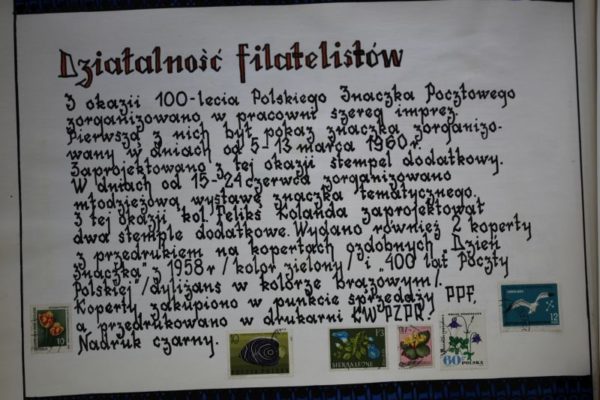 Działalność filatelistów
Z okazji 100-lecia Polskiego Znaczka Pocztowego
zorganizowano w pracowni szereg imprez.
Pierwszą z nich był pokaz znaczka zorganizo-
wany w dniach od 5-13 marca 1960 r.
Zaprojektowano z tej okazji stempel dodatkowy.
W dniach od 15-24 czerwca zorganizowano
młodzieżową wystawę znaczka tematycznego.
Z tej okazji kol. Feliks Kolanda zaprojektował
dwa stemple dodatkowe. Wydano również 2 koperty
z przedrukiem na kopertach ozdobnych "Dzień
Znaczka" z 1958 r /kolor zielony/ i "400 lat Poczty
Polskiej" /dyliżans w kolorze brązowym/.
Koperty zakupiono w punkcie sprzedaży PPF,
a przedrukowano w drukarni KW PZPR.
Nadruk czarny.
10
SIERRA LEONE
60
POLSKA
12